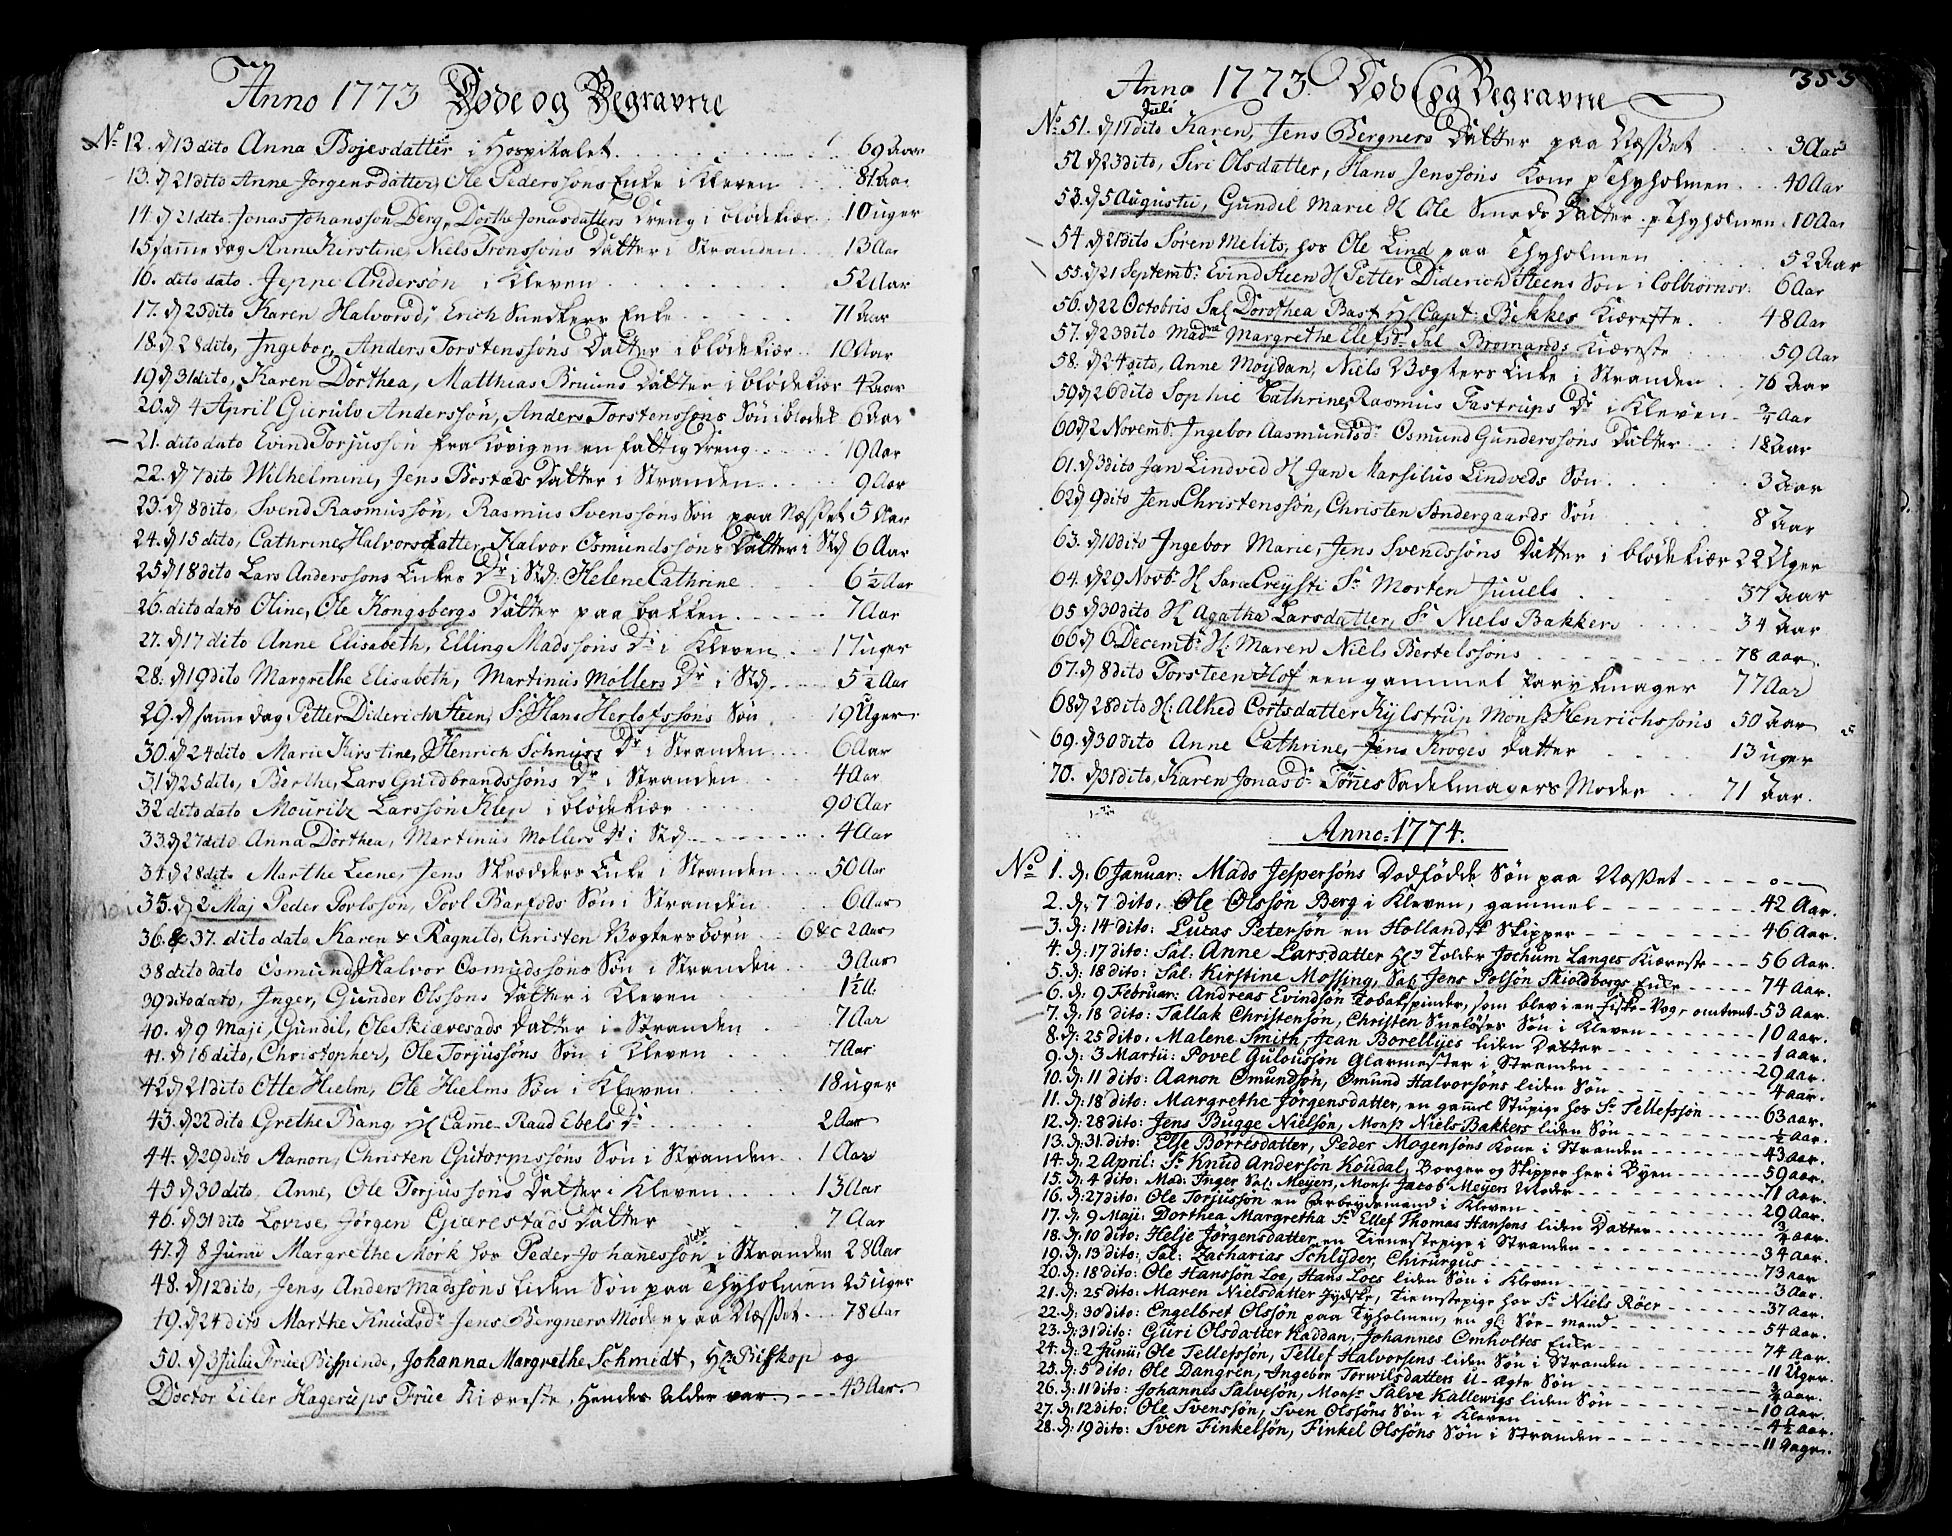 Anno 1773 Døde og Begravne
No 12. d 13 dito Anna Bojesdatter i Hospitalet 69 Aar
13. d 21 dito Anne Jørgensdatter, Ole Pederssøns Enke i Kleven 81 Aar
14. d 21 dito Jonas Johanssøn Berg, Dorthe Jonasdatters Dreng i Blødekiær 10 uger
15 samme dag Anne Kirstine, Niels Tronssøns Datter i Stranden 13 Aar
16. dito dato Jeppe Anderssøn i Kleven 52 Aar
17. d 23 dito Karen Halvorsd. Erich Snedkers Enke 71 Aar
18. d 28 dito, Ingebor, Anders Torstenssøns Datter i Blødekiær 10 Aar
19 d 31 dito, Karen Dorthea, Matthias Bruuns Datter i Blødekiær 4 Aar
20. d 4 April Gieruls Anderssøn, Anders Torstenssøns Søn i Blødek 6 Aar
21. dito dato Evind Torjussøn fra Kovigen en fattig Dreng 19 Aar
22. d 7 dito Wilhelmine, Jens Bostads Datter i Stranden 9 Aar
23. d 8 dito, Svend Rasmussøn, Rasmus Svenssøns Søn paa Næsset 5 Aar
24. d 15 dito, Cathrine Halvorsdatter, Halvor Osmundssøns Datter i Std 6 Aar
25 d 18 dito Lars Anderssons Enkes Dr i Std: Helene Cathrine 6½ Aar
26. dito dato Oline, Ole Kongsbergs Datter paa Bakken 7 Aar
27. d 17 dito Anne Elisabeth, Elling Madssøns Dr i Kleven 17 uger
28: d 19 dito Margrethe Elisabeth, Martinus Møllers Dr i Std 5½ Aar
29. d samme dag Petter Diderich Steen, Sr Hans Herlofssøns Søn 19 Uger
30. d 24 dito Marie Kirstine, Henrich Schnurs Dr i Stranden 6 Aar
31 d 25 dito, Berthe, Lars Guldbrandssøns Dr i Stranden 4 Aar
32 dito dato Mouritz Larssøn Klep i Blødekiær 90 Aar
33. d 27 dito Anna Dorthea, Martinus Møllers Dr i Std 4 Aar
34. d 28 dito Marthe Leene, Jens Skrædders Enke i Stranden 50 Aar
35. d 2 Maj Peder Povlsøn, Povl Barfods Søn i Stranden 6 Aar
36. & 37. dito dato Karen & Ragnild, Christen Bogters børn 6 & 2 Aar
38 dito dato Osmund, Halvor Osmudssøns Søn i Stranden 3 Aar
39 dito dato, Inger, Gunder Olssøns Datter i Kleven 1½ A:
40. d 9 Maji, Gundil, Ole Skiæresads Datter i Stranden 7 Aar
41. d 16 dito, Christopher, Ole Torjussøns Søn i Kleven 7 Aar
42 d 21 dito Otte Hielm, Ole Hielms Søn i Kleven 18 uger
43. d 22 dito Grethe Bang, H Camme-Raad Ebels Dr 2 Aar
44. d 29 dito Aanon, Christen Gutormssøns Søn i Stranden 1 Aar
45 d 30 dito, Anne, Ole Torjussøns Datter i Kleven 13 Aar
46. d 31 dito Lovise, Jørgen Gjærestads Datter 7 Aar
47. d 8 Junii Margrethe Mørk hos Peder Johannessøn i Stranden 28 Aar
48. d 12 dito, Jens, Anders Madssøns liden Søn paa Thyholmen 25 uger
49. d 24 dito Marthe Knudsdr Jens Bergners Moder paa Næsset 78 Aar
50. d 3 Julii Frue Bispinde, Johanna Margrethe Schmidt, Hr Biskop og
Doctor Eiler Hagerups Frue Kiæreste, Hendes Alder var 43 Aar.
353
Anno 1773. Døde og Begravne
Juli
No 51. d 11 dito Karen, Jens Bergners Datter paa Næsset 3 Aar
52 d 23 dito, Siri Olsdatter, Hans Jenssøns Kone p Thyholmen 40 Aar
53. d 5 Augustii, Gundil Marie H Ole Smeds Datter p Thyholmen 10 Aar
54. d 21 dito Søren Melits, hos Ole Lind paa Thyholmen 52 Aar
55. d 21 Septemb: Evind Steen H Petter Diderich Steens Søn i Colbiørnsv: 6 Aar
56. d 22 Octobris Sal Dorothea Bast H Capt: Bekkes Kiæreste 48 Aar
57. d 23 dito Madme Margrethe Elefsd. Sal Bromands Kiæreste 59 Aar
58: d 24 dito, Anne Moydan, Niels Bogters Enke i Stranden 76 Aar
59 d 26 dito Sophie Cathrine, Rasmus Fastrups Dr i Kleven ¾ Aar
60 d 2 Novemb: Ingebor Aasmundsdr Osmund Gunderssøns Datter 18 Aar
61. d 3 dito Jan Lindved H Jan Marsilius Lindveds Søn 3 Aar
62 d 9 dito Jens Christenssøn, Christen Søndergaards Søn 8 Aar
63. d 10 dito Ingebor Marie, Jens Svendssøns Datter i Blødekiær 22 Uger
64. d 29 Novb: H Sara Creysti Sr Morten Juuels 37 Aar
65 d 30 dito H Agatha Larsdatter, Sr Niels Bakkers 34 Aar
66 d 6 Decemb: H: Maren Niels Bertelssøns 78 Aar
67. d 8 dito Torsteen Hof een gammel Parykmager 77 Aar
68 d 28 dito H: Alhed Cortsdatter Kylstrup Monsr Henrichssøns 50 Aar
69. d 30 dito Anne Cathrine, Jens Kroges Datter 13 uger
70. d 31 dito, Karen Jonasdr Tønes Sadelmagers Moder 71 Aar.
Anno: 1774.
No 1. d: 6 Januar: Mads Jespersøns Dødfødde Søn paa Næsset - o -
2. d: 7 dito. Ole Olssøn Berg i Kleven, gammel 42 Aar.
3. d: 14 dito: Lucas Petersøn en Hollandsk Skipper 46 Aar.
4. d: 17 dito: Sal. Anne Larsdatter Hr Tolder Jochum Langes Kiæreste 56 Aar.
5. d: 18 dito: Sal: Kirstine Mossing, Sal. Jens Polsøn Skioldborgs Enke 74 Aar.
6. d: 9 Februar: Andreas Evindsøn Tobakspinder, som blev i en Fiske-Vog, omtrent 53 Aar.
7. d: 18 dito: Tallak Christensøn, Christen Sneløses Søn i Kleven 10 aar.
8: d: 25 dito: Malene Smith, Jean Borellyes liden Datter 1 aar.
9. d: 3 Martii: Povel Guloussøn Glarmester i Stranden 29 aar.
10. d: 11 dito: Aanon Omundsøn, Omund Halvorsøns liden Søn 4 aar.
11. d: 18 dito: Margrethe Jørgensdatter, en gammel Stupige hos Sr Tellefssøn 63 aar.
12. d: 28 dito: Jens Bugge Nielsøn, Monsr Niels Bakkers liden Søn ½ Aar.
13. d: 31. dito: Else Børresdatter, Peder Mogensøns Kone i Stranden 43 aar.
14. d: 2 April: Sr Knud Andersøn Koudal, Borger og Skipper her i Byen 59 aar.
15. d: 4 dito: Mad: Inger Sal: Meyers, Monsr Jacob Meyers Moder 71 aar.
16. d: 27 dito: Ole Torjussøn en Earbeydsmand i Kleven 29 Aar.
17. d: 9 Maji: Dorthea Margretha Sr Ellef Thomas Hansøns liden Datter ¾ aar.
18. d: 10 dito: Helje Jørgensdatter en Tienestepige i Stranden 34 aar.
19. d: 13 dito: Sal: Zacharias Schlyder, Chirurgus 73 aar.
20. d: 18 dito: Ole Hanssøn Loe, Hans Loes liden Søn i Kleven 3 aar.
21. d: 25 dito: Maren Nielsdatter Jydske, Tienestepige hos Sr Niels Røer 37 aar.
22. d: 30 dito: Engelbret Olssøn paa Tyholmen, en gl: Søe-mand 54 aar.
23. d: 31 dito: Guri Olsdatter Raddan, Johannes Omholtes Enke 74 Aar.
24. d: 2 Junii: Ole Tellefssøn, Tellef Halvorsens liden Søn i Stranden 11 Uger.
25. d: 5 dito: Ole Dangren, Ingebor Torwilsdatters U-ægte Søn ¾ aar.
26. d: 11 dito: Johannes Salvesøn, Monsr Salve Kallewigs liden Søn 10 Aar.
27. d: 12 dito: Ole Svenssøn, Sven Olssøns Søn i Kleven 4½ aar.
28. d: 19 dito: Sven Finkelsøn, Finkel Olssøns Søn i Stranden 11 Dage.